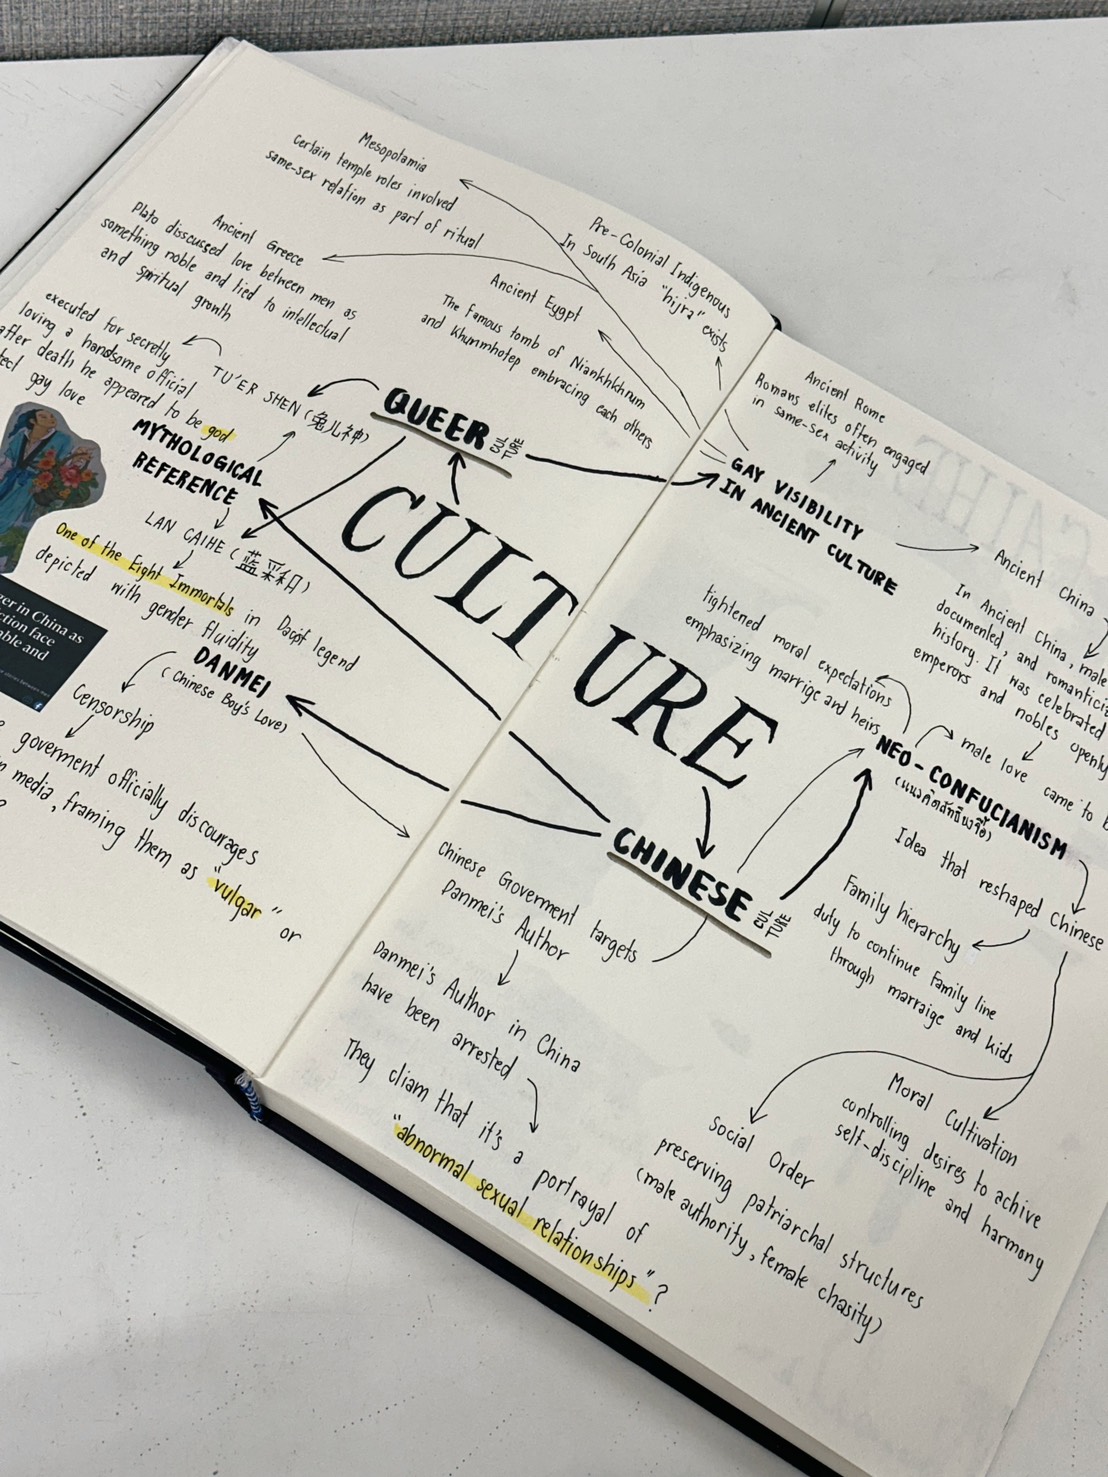 Mesopotamia
Certain temple roles involved
same-sex relation as part of ritual
Pre-Colonial Indigenous
In South Asia "hijra" exists
Ancient Greece
Plato discussed love between men as
something noble and tied to intellectual
and spiritual growth
Ancient Eygpt
The famous tomb of Niankhkhnum
and Khnumhotep embracing each others
executed for secretly
loving a handsome official
after death he appeared to be god
gay love
TU'ER SHEN (兔儿神)
QUEER CULTURE
MYTHOLOGICAL
REFERENCE
LAN CAIHE (蓝采和)
One of the Eight Immortals in Daoist legend
depicted with gender fluidity
DANMEI
(Chinese Boy's Love)
Censorship
goverment officially discourages
media, framing them as "vulgar" or
in China as
face
able and
CULTURE
Ancient Rome
Romans elites often engaged
in same-sex activity
GAY VISIBILITY
IN ANCIENT CULTURE
Ancient China
In Ancient China, male
documented, and romanticiz
history. It was celebrated
emperors and nobles openly
tightened moral expectations
emphasizing marrige and heirs
NEO-CONFUCIANISM
(แนวคิดลัทธิขงจื้อ)
male love came to b
Idea that reshaped Chinese
CHINESE CULTURE
Family hierarchy
duty to continue family line
through marraige and kids
Chinese Goverment targets
Danmei's Author
Danmei's Author in China
have been arrested
They cliam that it's a portrayal of
"abnormal sexual relationships"?
Moral Cultivation
controlling desires to achive
self-discipline and harmony
Social Order
preserving patriarchal structures
(male authority, female chasity)